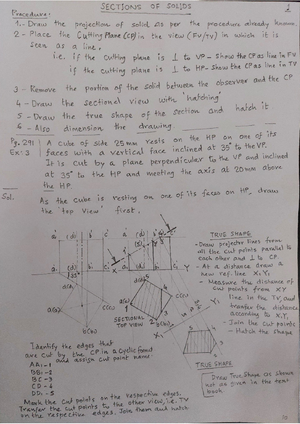 SECTIONS OF SOLIDS
2
Procedure:
1 - Draw the projection of solid as per the procedure already known
2 - Place the Cutting Plane (CP) in the view (FV/TV) in which it is
seen as a line,
i.e. if the cutting plane is ⊥ to VP - Show the CP as line in FV
if the cutting plane is ⊥ to HP - Show the CP as line in TV
3 - Remove the portion of the solid between the observer and the CP
4 - Draw the sectional view with 'hatching'
5 - Draw the true shape of the section and hatch it.
6 - Also dimension the drawing
Pg. 291
Ex. 3
A cube of side 25mm rests on the HP on one of its
faces with a vertical face inclined at 35° to the VP.
It is cut by a plane perpendicular to the VP and inclined
at 35° to the HP and meeting the axis at 20mm above
the HP
Sol.
As the cube is resting on one of its faces on HP, draw
the top view first.
TRUE SHAPE
- Draw projector lines from
all the cut points parallel to
each other and ⊥ to CP.
- At a distance draw a
new ref. line X₁Y₁
- Measure the distance of
cut points from XY
line in the TV, and
transfer the distance
according to X₁Y₁
- Join the cut points
- Hatch the shape
SECTIONAL
TOP VIEW
TRUE SHAPE
Draw True Shape as shown
not as given in the text
book
Identify the edges that
are cut by the CP in a cyclic format
and assign cut point name
AA₁-1
BB₁-2
BC-3
CD-4
DD₁-5
Mark the cut points on the respective edges.
Transfer the cut points to the other view, i.e. TV
on the respective edges. Join them and hatch